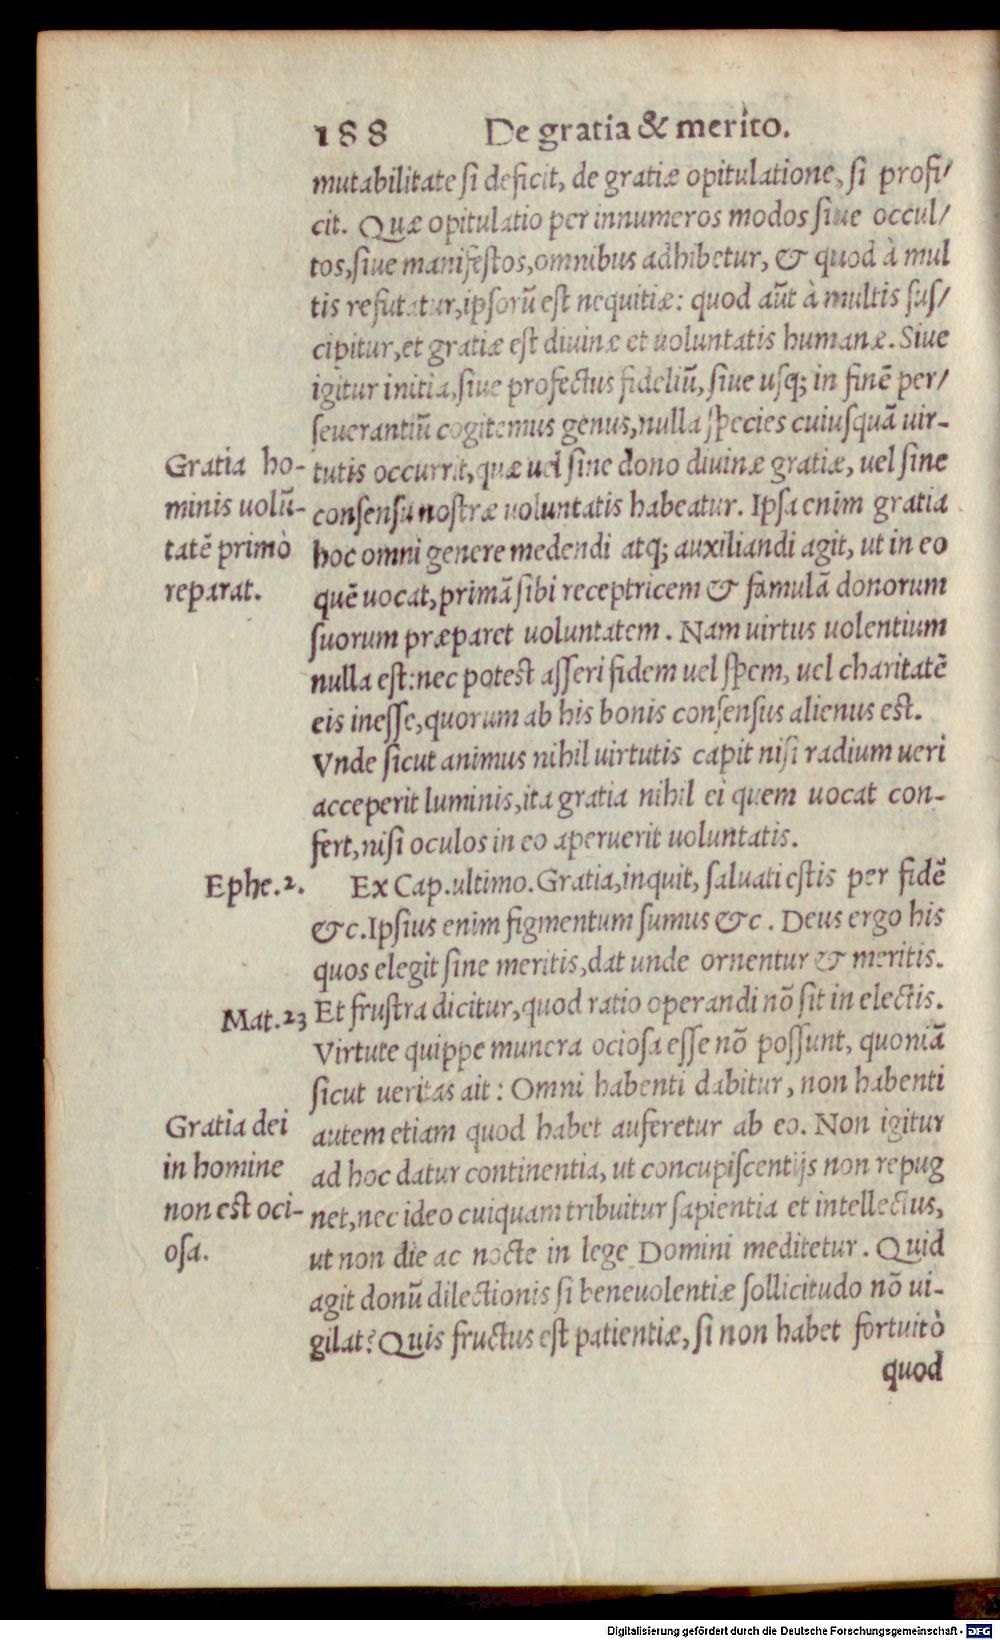 188 De gratia & merito.
mutabilitate si deficit, de gratiæ opitulatione, si profi/
cit. Quæ opitulatio per innumeros modos siue occul/
tos, siue manifestos, omnibus adhibetur, & quod à mul
tis refutatur, ipsorũ est nequitiæ: quod aũt à multis sus/
cipitur, et gratiæ est diuinæ et uoluntatis humanæ. Siue
igitur initia, siue profectus fideliũ, siue usq; in finē per/
seuerantiũ cogitemus genus, nulla species cuiusquã uir-
tutis occurrit, quæ uel sine dono diuinæ gratiæ, uel sine
consensu nostræ uoluntatis habeatur. Ipsa enim gratia
hoc omni genere medendi atq; auxiliandi agit, ut in eo
quē uocat, primã sibi receptricem & famulã donorum
suorum præparet uoluntatem. Nam uirtus uolentium
nulla est: nec potest asseri fidem uel spem, uel charitatē
eis inesse, quorum ab his bonis consensus alienus est.
Vnde sicut animus nihil uirtutis capit nisi radium ueri
acceperit luminis, ita gratia nihil ei quem uocat con-
fert, nisi oculos in eo aperuerit uoluntatis.
Gratia ho-
minis uolũ-
tatē primò
reparat.
Ephe.2.
Ex Cap. ultimo. Gratia, inquit, saluati estis per fidē
&c. Ipsius enim figmentum sumus &c. Deus ergo his
quos elegit sine meritis, dat unde ornentur & meritis.
Et frustra dicitur, quod ratio operandi nõ sit in electis.
Virtute quippe munera ociosa esse nõ possunt, quoniã
sicut ueritas ait: Omni habenti dabitur, non habenti
autem etiam quod habet auferetur ab eo. Non igitur
ad hoc datur continentia, ut concupiscentijs non repug
net, nec ideo cuiquam tribuitur sapientia et intellectus,
ut non die ac nocte in lege Domini meditetur. Quid
agit donũ dilectionis si beneuolentiæ sollicitudo nõ ui-
gilat? Quis fructus est patientiæ, si non habet fortuitò
quod
Mat.23
Gratia dei
in homine
non est oci-
osa.
Digitalisierung gefördert durch die Deutsche Forschungsgemeinschaft - DFG